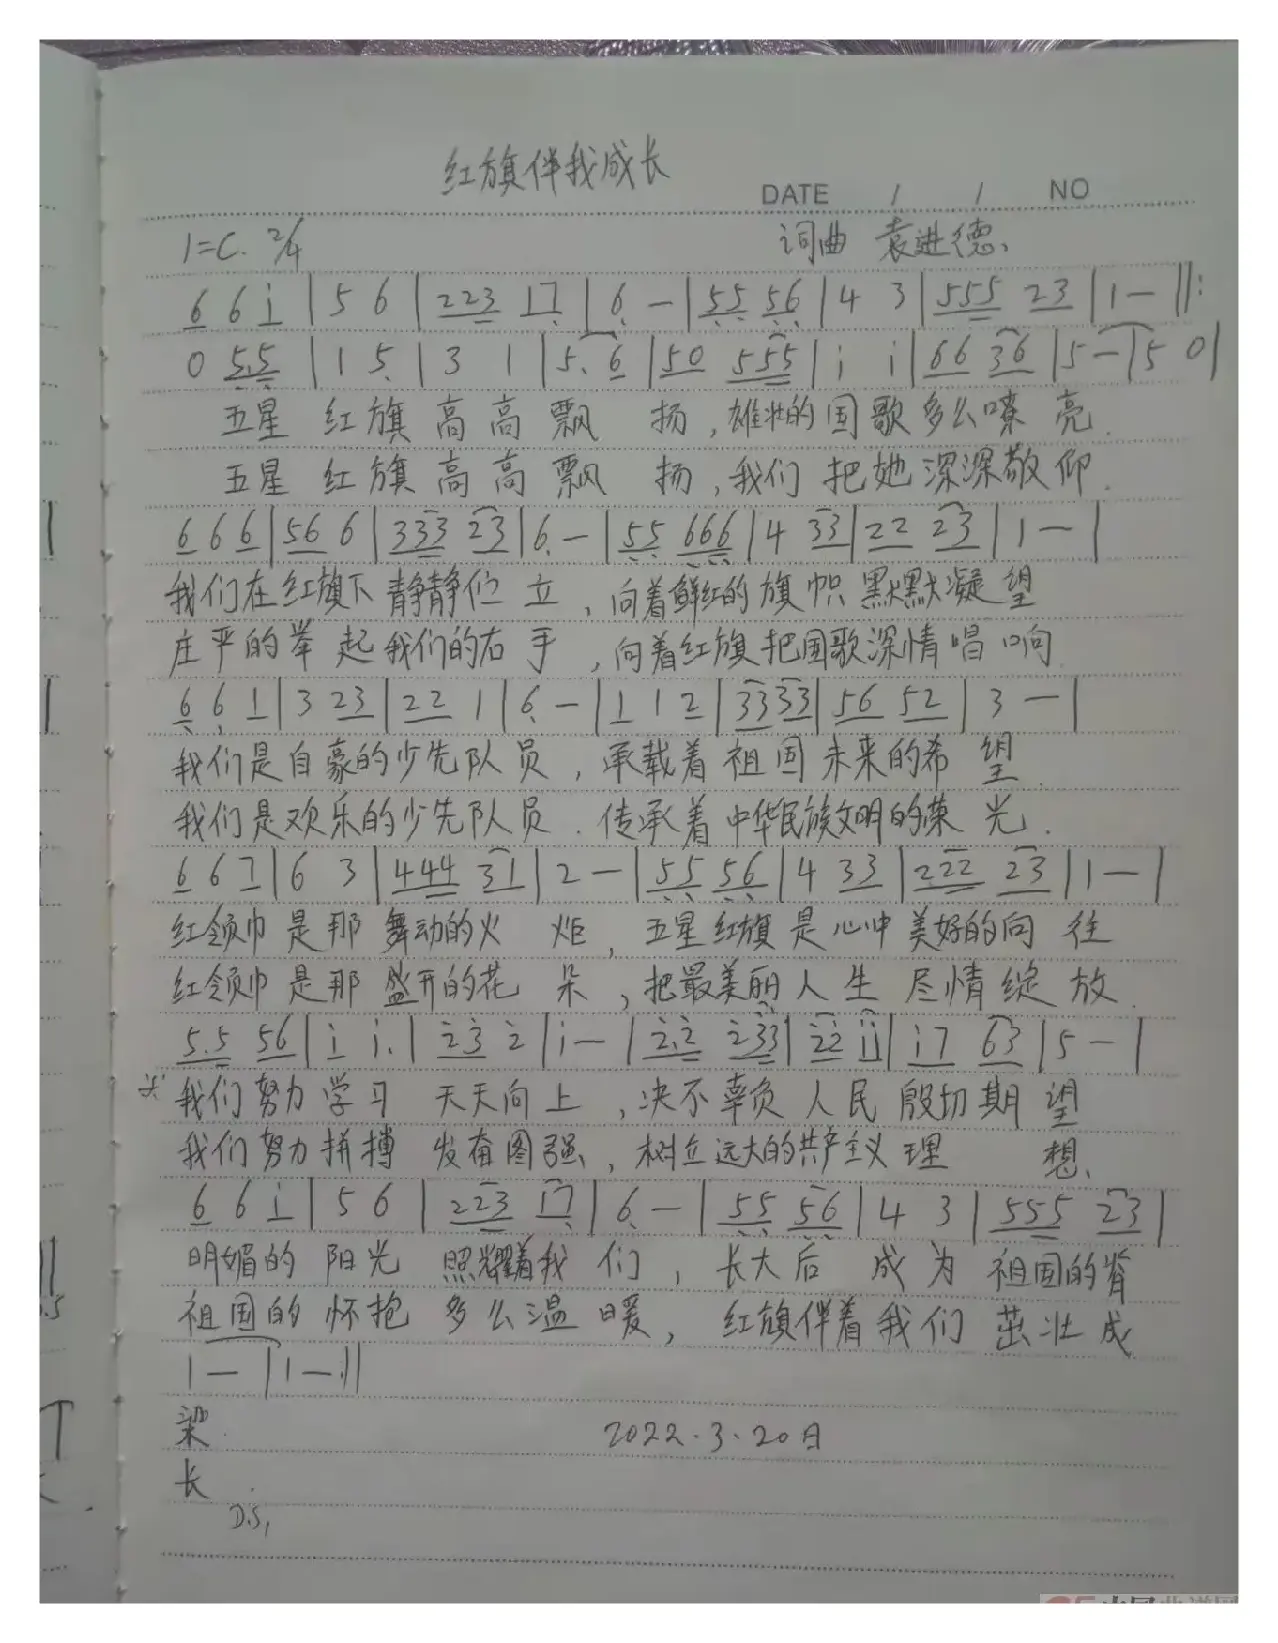 红旗伴我成长
DATE / / NO
1=C. 2/4 词曲 袁进德、
6 6 i | 5 6 | 223 17 | 6 — | 55 56 | 4 3 | 555 23 | 1 — ‖:
0 5.5 | 1 5 | 3 1 | 5. 6 | 50 555 | i i | 66 36 | 5 — | 5 0 |
五星 红旗 高高飘 扬,雄壮的国歌多么嘹亮.
五星 红旗 高高飘 扬,我们把她深深敬仰.
6 6 6 | 56 6 | 333 23 | 6 — | 55 666 | 4 33 | 22 23 | 1 — |
我们在红旗下静静伫立,向着鲜红的旗帜默默凝望
庄严的举起我们的右手,向着红旗把国歌深情唱响
6 6 1 | 3 23 | 22 1 | 6 — | 1 1 2 | 33 33 | 56 52 | 3 — |
我们是自豪的少先队员,承载着祖国未来的希望.
我们是欢乐的少先队员.传承着中华民族文明的荣光.
6 6 7 | 6 3 | 444 31 | 2 — | 55 56 | 4 33 | 222 23 | 1 — |
红领巾是那舞动的火炬,五星红旗是心中美好的向往
红领巾是那盛开的花朵,把最美丽人生尽情绽放.
5.5 56 | i i. | 23 2 | i — | 2.2 233 | 22 ii | i7 63 | 5 — |
我们努力学习 天天向上,决不辜负人民殷切期望
我们努力拼搏 发奋图强,树立远大的共产主义理想、
6 6 i | 5 6 | 223 17 | 6 — | 55 56 | 4 3 | 555 23 |
明媚的阳光 照耀着我们,长大后成为祖国的脊
祖国的怀抱多么温暖,红旗伴着我们茁壮成
1 — | 1 — :‖
梁 2022.3.20日
长.
D.S,